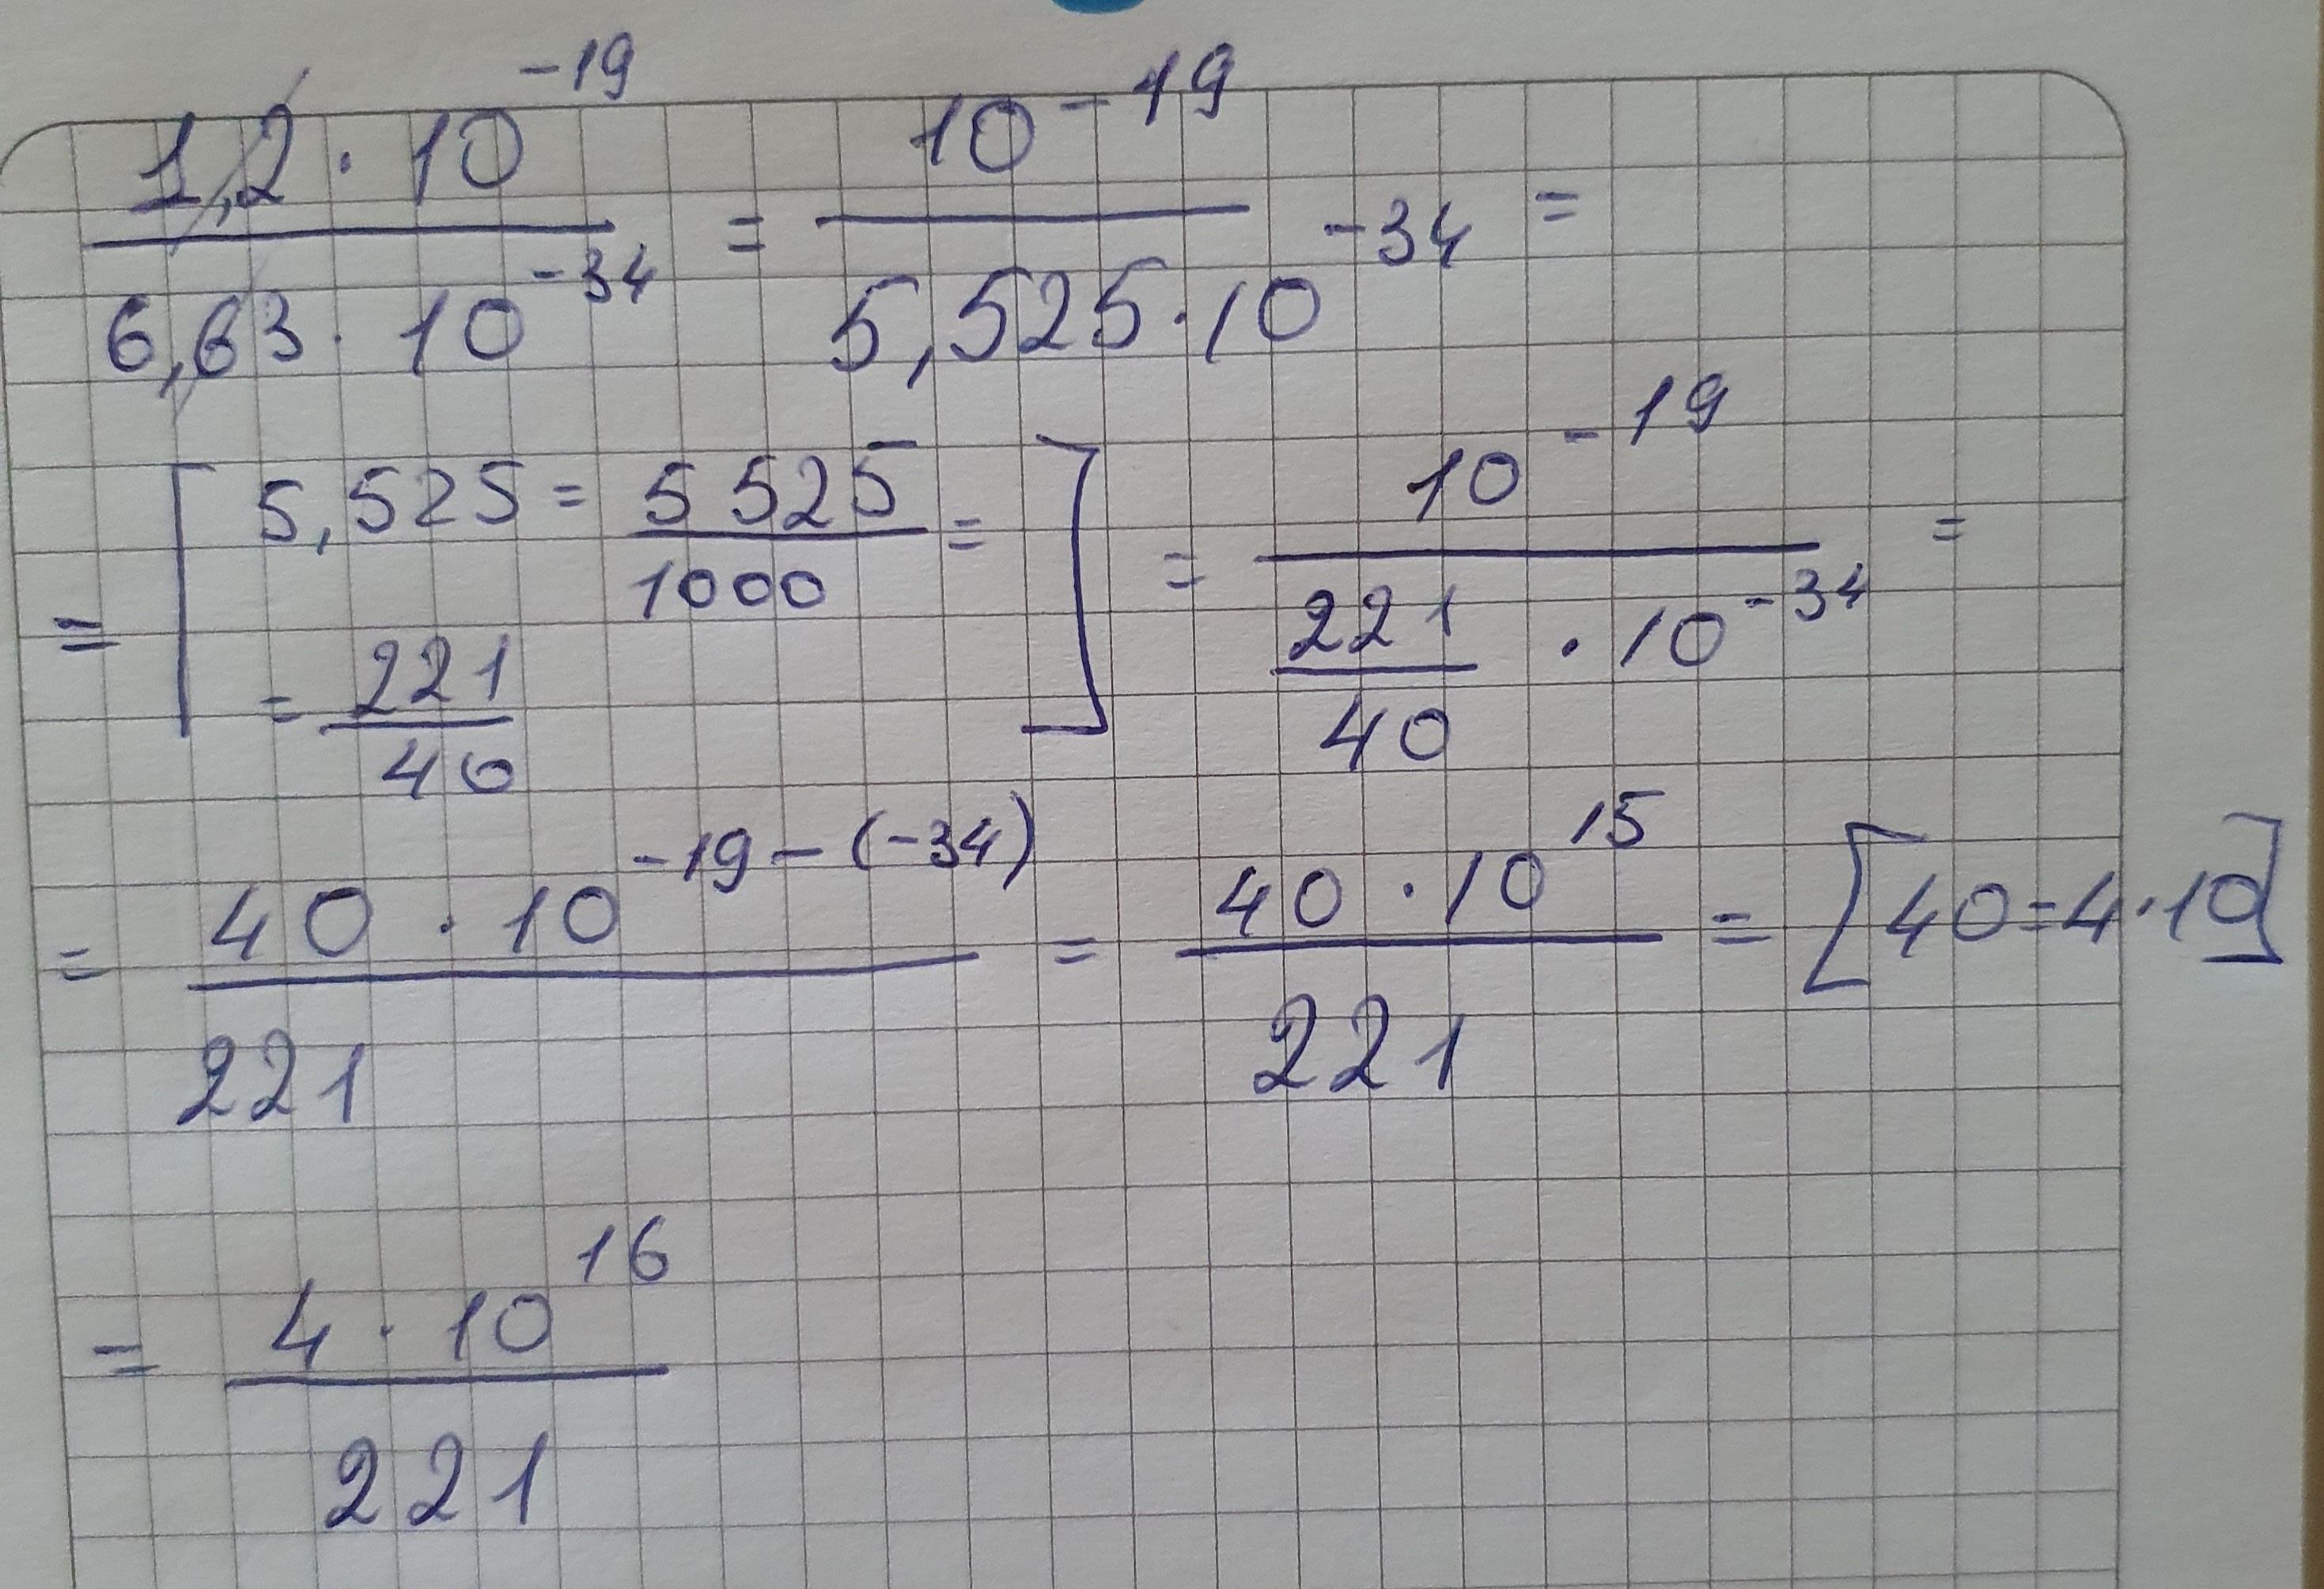 1,2 · 10^-19 / 6,63 · 10^-34 = 10^-19 / 5,525 · 10^-34 =
= [5,525 = 5525/1000 = = 221/40] = 10^-19 / (221/40 · 10^-34) =
= 40 · 10^-19-(-34) / 221 = 40 · 10^15 / 221 = [40=4·10]
= 4 · 10^16 / 221